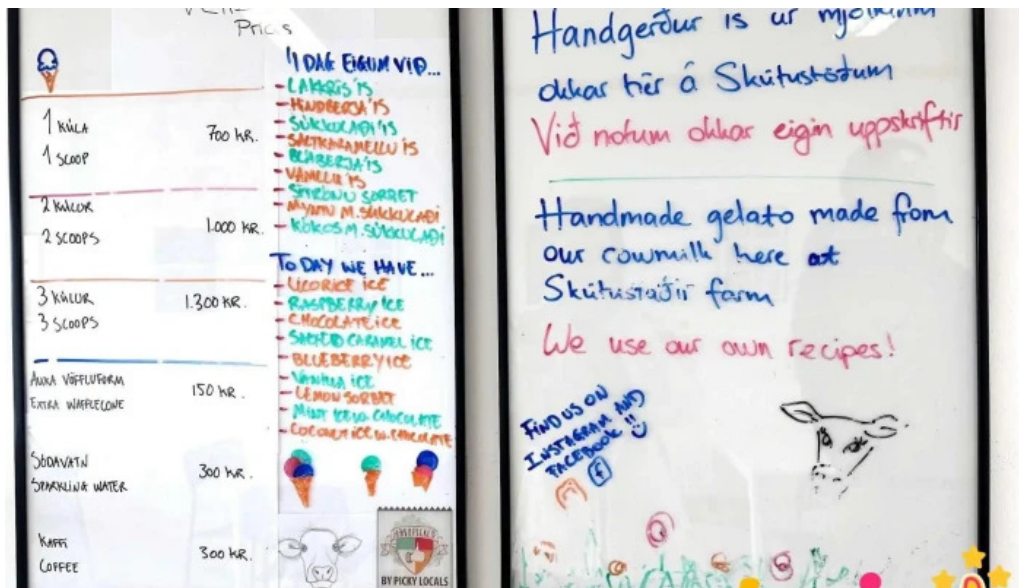 Prices
1 KÚLA
1 SCOOP
700 KR.
2 KÚLUR
2 SCOOPS
1.000 KR.
3 KÚLUR
3 SCOOPS
1.300 KR.
AUKA VÖFFLUFORM
EXTRA WAFFLECONE
150 KR.
SÓDAVATN
SPARKLING WATER
300 KR.
KAFFI
COFFEE
300 KR.
Í DAG EIGUM VIÐ...
- LAKKRÍS ÍS
- HINDBERJA ÍS
- SÚKKULAÐI ÍS
- SALTKARAMELLU ÍS
- BLÁBERJA ÍS
- VANILLU ÍS
- SÍTRÓNU SORBET
- MYNTU M. SÚKKULAÐI
- KÓKOS M. SÚKKULAÐI
TODAY WE HAVE...
- LICORICE ICE
- RASPBERRY ICE
- CHOCOLATE ICE
- SALTED CARAMEL ICE
- BLUEBERRY ICE
- VANILLA ICE
- LEMON SORBET
- MINT ICE W. CHOCOLATE
- COCONUT ICE W. CHOCOLATE
BY PICKY LOCALS
Handgerður ís úr mjólkinni
okkar hér á Skútustöðum
Við notum okkar eigin uppskriftir
Handmade gelato made from
our cowmilk here at
Skútustaðir farm
We use our own recipes!
FIND US ON
INSTAGRAM AND
FACEBOOK !!